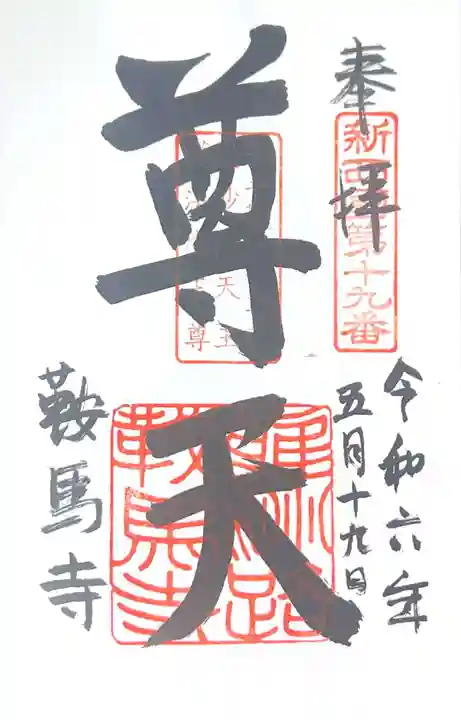 奉拝
新西国第十九番
令和六年
五月十九日
尊天
鞍馬寺